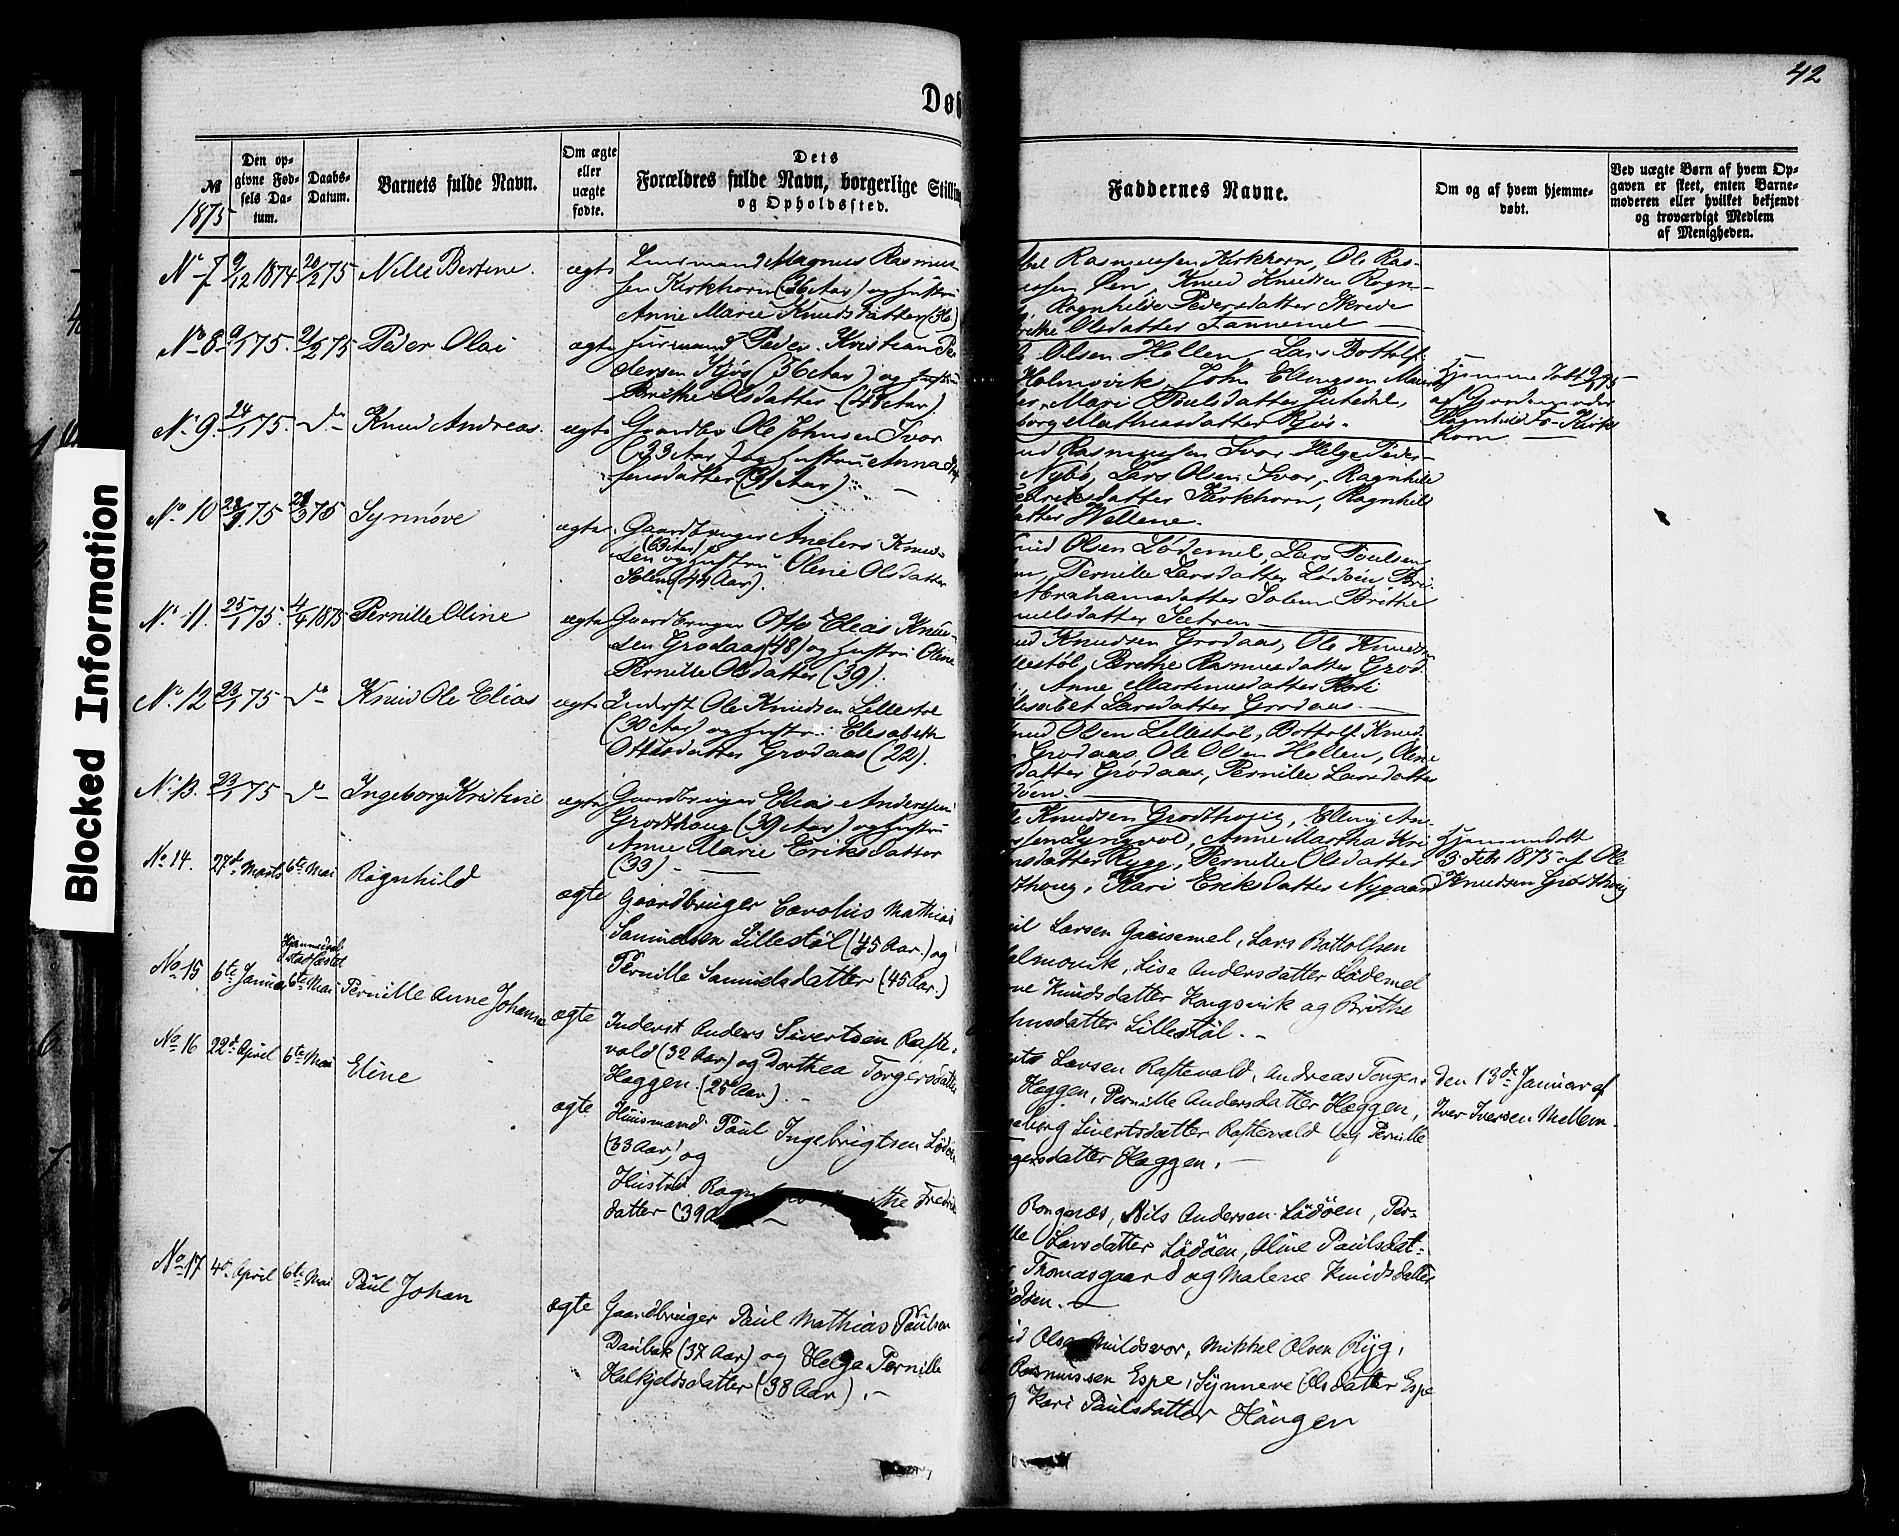 42
Døb
№
1875
Den op-
givne Fød-
sels Da-
tum.
Daabs-
Datum.
Barnets fulde Navn.
Om ægte
eller
uægte
fødte.
Dets
Forældres fulde Navn, borgerlige Stilling
og Opholdssted.
Faddernes Navne.
Om og af hvem hjemme-
døbt.
Ved uægte Børn af hvem Op-
gaven er skeet, enten Barne-
moderen eller hvilket bekjendt
og troværdigt Medlem
af Menigheden.
No 7 9/12 1874 20/2 75 Nille Bertine. ægte
Magnus Rasmus-
sen Kirkhorn (36 Aar) og Hustru
Anne Marie Knudsdatter (36)
Rasmussen Kirkhorn, Ole Ras-
Øen, Knud Knudsen Rogn-
Ragnhilde Pedersdatter Skrede
Brithe Olsdatter Tannemel
No 8 9/1 75. 21/2 75 Peder Olai ægte
Huusmand Peder Kristian Pe-
dersen Kjøs (36 Aar) og Hustru
Brithe Olsdatter (48 Aar).
Olsen Hellen, Lars Bottolf-
Holmøvik, John Ellingsen
Mari Poulsdatter
borg Mathiasdatter Kjøs.
Hjemmedøbt 9/1 75
af Gordemoder
Ragnhild Kirk-
horn
No 9. 24/1 75. do Knud Andreas. ægte
Gaardbr Ole Johnsen Svor
(33 Aar) og Hustru Anna
sensdatter (31 Aar)
Rasmussen Svor Helge Peder-
Nybø, Lars Olsen Svor, Ragnhild
datter Kirkhorn, Ragnhild
datter Wellene.
No 10 75 75 Synnøve ægte
Gaardbruger Anders Knud-
(63 Aar)
sen og Hustru Oline Olsdatter
Solem (44 Aar).
Knud Olsen Lødemel, Lars Poulsen
Pernille Larsdatter Lødøen, Bri-
Abrahamsdatter Solem Brithe
datter Sætren
No 11. 25/1 75. 4/4 1875 Pernille Oline ægte
Gaardbruger Otto Elias Knud-
sen Grodaas (48) og Hustru Oline
Pernille Olsdatter (39).
Knudsen Grodaas, Ole Knudsen
Lillestøl, Brithe Rasmusdatter Grod-
Anne Martinusdatter
Elisabet Larsdatter Grodaas
No 12 23/1 75 do Knud Ole Elias ægte
Inderst Ole Knudsen Lillestøl
(30 Aar) og Hustru Elisabeth
Ottosdatter Grodaas (22).
Knud Olsen Lillestøl, Bottolf Knud-
Grodaas Ole Olsen Hellen, Oline
datter Grødaas, Pernille Larsdatter
Lødøen.
No 13. 23/1 75 do Ingeborg Kristine ægte
Gaardbruger Elias Andersen
Grodthoug (39 Aar) og Hustru
Anne Marie Eriksdatter
(33)
Ole Knudsen Grodthoug, Elling An-
dersen Lyngvol, Anne Martha Kri-
datter Rygg, Pernille Olsdatter
Grodthoug, Kari Eriksdatter Nygaard
Hjemmedøbt
3 Feb 1875 af Ole
Knudsen Grodthoug
No 14. 27de Marts 6te Mai Ragnhild ægte
Gaardbruger Carolus Mathias
Samuelsen Lillestöl (45 Aar.) og
Pernille Samuelsdatter (45 Aar.)
Larsen Gausemel, Lars Bottolfsen
Holmövik, Lisa Andersdatter Lödemel
Knudsdatter Kongsvik og Brithe
datter Lillestöl.
Hjemmedaab
stadfæstet
No 15 6te Januar 6te Mai Pernille Anne Johanna ægte
Inderst Anders Sivertsen Rafte-
vold (32 Aar) og Dorthea Torgersdatter
Haggen (25 Aar).
Larsen Raftevold, Andreas Torger-
Haggen, Pernille Andersdatter Haggen,
Ingeborg Sivertsdatter Raftevold og Pernille
Torgersdatter Haggen.
den 13de Januar af
Iver Iversen Mellem-
No 16 22de April 6te Mai Eline ægte
Huusmand Paul Ingebrigtsen Lödöen
(33 Aar) og
Hustru Ragn the Fredrik
datter (39 A
Rongenæs, Nils Andersen Lödöen, Per-
nille Larsdatter Lödöen, Oline Paulsdat-
Thomasgaard og Malene Knudsdatter
Lödöen.
No 17 4de April 6te Mai Paul Johan ægte
Gaardbruger Paul Mathias Paulsen
Daubak (37 Aar) og Helga Pernille
Halkjelsdatter (38 Aar).
Olsen Muldsvor, Mikkel Olsen Ryg,
Rasmussen Espe, Synneve Olsdatter Espe
og Kari Paulsdatter Haugen
Blocked Information